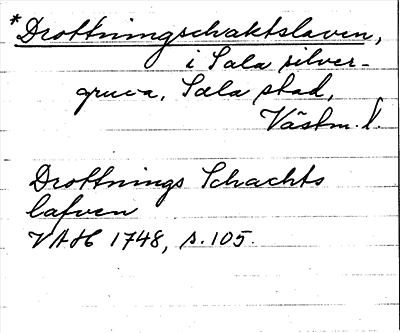 *Drottningschaktslaven,
i Sala silver-
gruva, Sala stad,
Västm. l.
Drottnings Schachts
lafven
VAH 1748, s. 105.